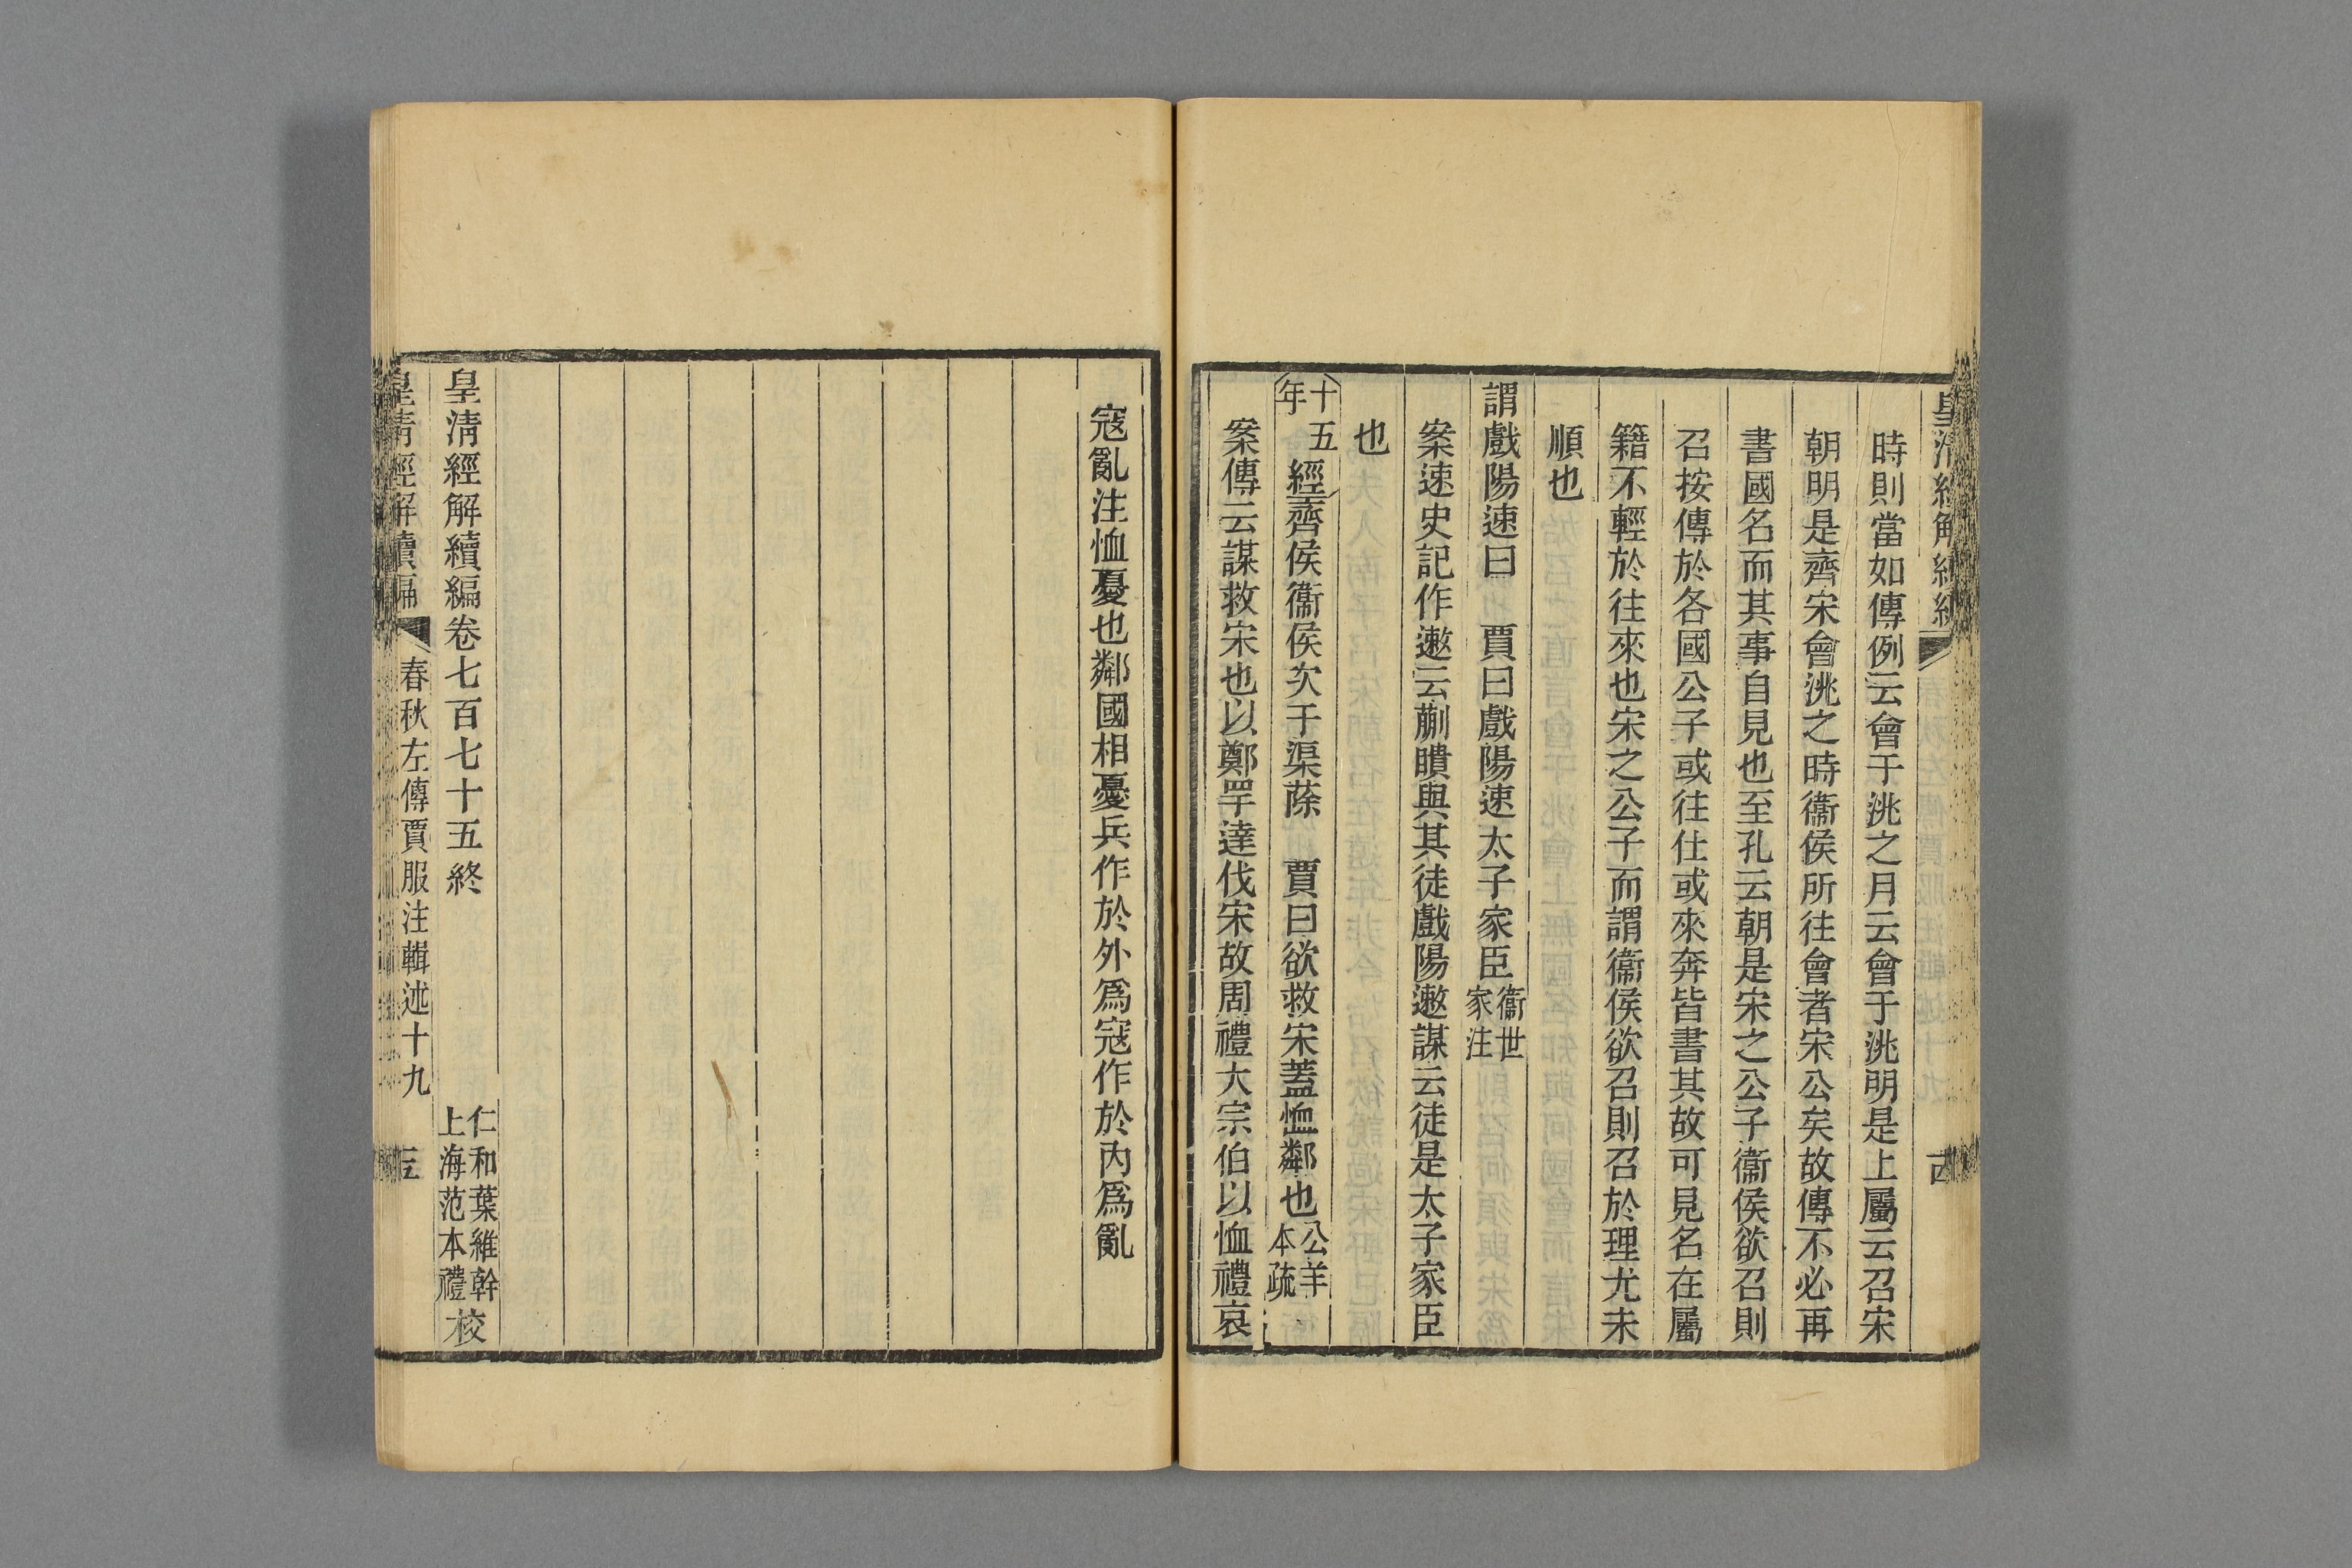 時則當如傳例云會于洮之月云會于洮明是上屬云召宋
朝明是齊宋會洮之時衞侯所往會者宋公矣故傳不必再
書國名而其事自見也至孔云朝是宋之公子衞侯欲召則
召按傳於各國公子或往仕或來奔皆書其故可見名在屬
籍不輕於往來也宋之公子而謂衞侯欲召則召於理尤未
順也
謂戲陽速曰　賈曰戲陽速太子家臣衞世家注
案速史記作遬云蒯聵與其徒戲陽遬謀云徒是太子家臣
也
十五年經齊侯衞侯次于渠蒢　賈曰欲救宋蓋恤鄰也公羊本疏
案傳云謀救宋也以鄭罕達伐宋故周禮大宗伯以恤禮哀
寇亂注恤憂也鄰國相憂兵作於外爲寇作於內爲亂
皇清經解續編卷七百七十五終
仁和葉維幹
上海范本禮校
皇清經解續編　春秋左傳賈服注輯述十九